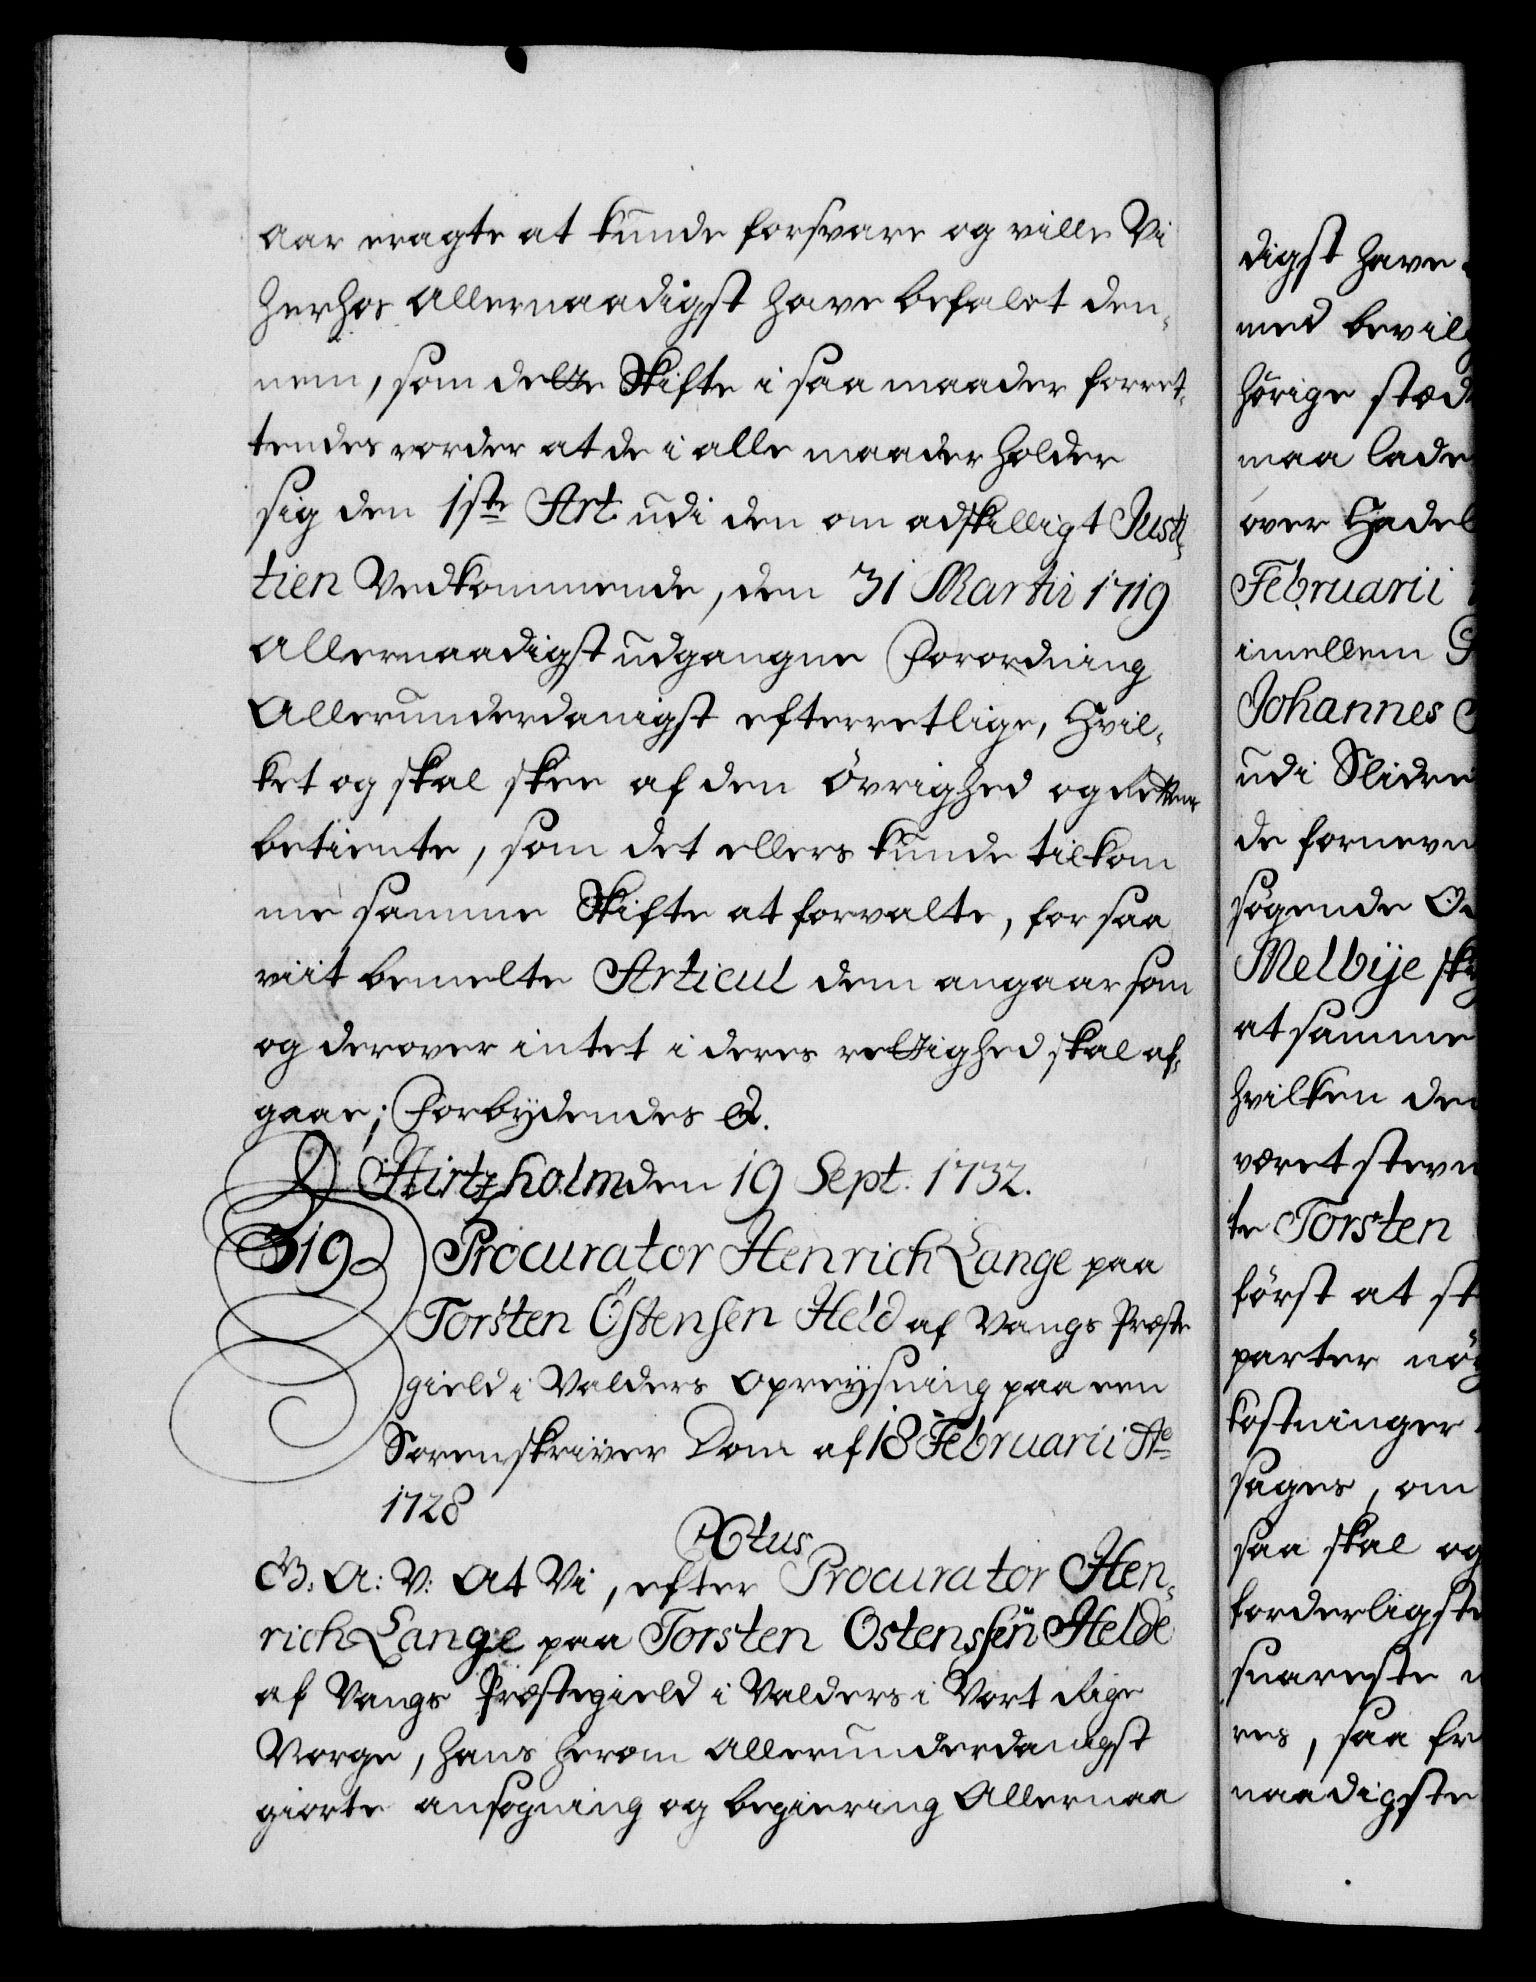 aar eragte at kunde forsvare og ville Vi
herhos Allernaadigst have befalet den,
nem, som dette Skifte i saa maader forret,
tendes vorder at de i alle maader holder
sig den 1ste Art: udi den om adskilligt Justi,
tien Vedkommende, den 31 Martii 1719
Allernaadigst udgangne Forordning
Allerunderdanigst efterretlige, Hvil,
ket og skal skee af den Övrighed og Rettens
betiente, som det ellers kunde tilkom
me samme Skifte at forvalte, for saa
viit bemelte Articul dem angaar som
og derover intet i deres rettighed skal af,
gaae; Forbydendes &.
Hirtzholm den 19 Sept. 1732.
319 Procurator Henrich Lange paa
Torsten Östensen Held af Vangs Præste
gield i Valders Opreysning paa een
Sorenskriver Dom af 18 Februarii Ao
1728
Ctus
G: A: V: At Vi, efter Procurator Hen,
rich Lange paa Torsten Ostensen Helde
af Vangs Præstegield i Valders i Vort Rige
Norge, hans herom Allerunderdanigst
giorte ansøgning og begiering Allernaa
digst have
med bevil
hörige stæd
maa lade
over Hadel
Februarii
imellem
Johannes
udi Slidre
de fornevn
søgende
Melbÿe
at samme
hvilken den
været stevn
te Torsten
først at st
parter nöÿ
kostninger
sages, om
saa skal og
forderligste
snareste
res, saa fr
naadigste